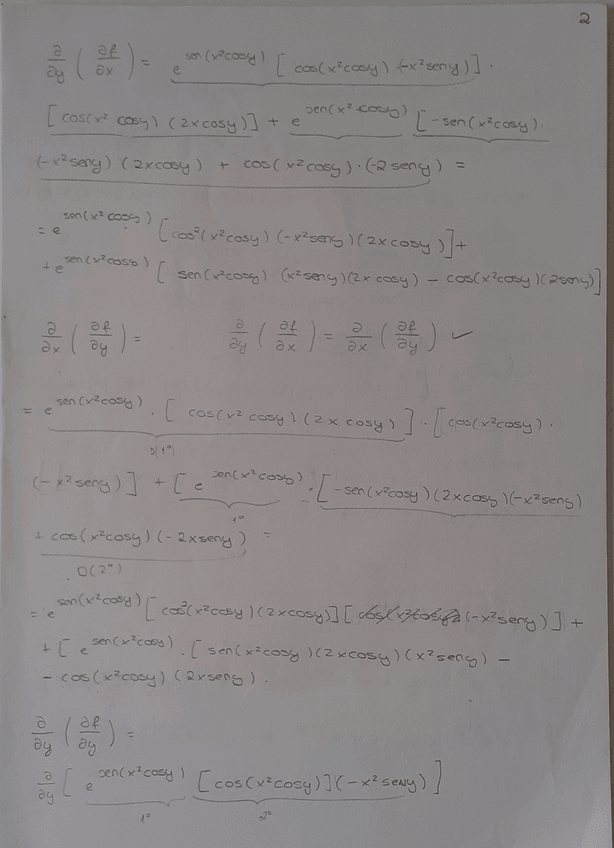 2
∂/∂y (∂f/∂x) = e^sen(x²cosy) [cos(x²cosy) (-x²seny)] ·
[cos(x² cosy) · (2xcosy)] + e^sen(x²cosy) [-sen(x²cosy) ·
(-x²seny) (2xcosy) + cos(x²cosy) · (-2seny) =
= e^sen(x²cosy) [cos²(x²cosy) (-x²seny)(2xcosy)] +
+ e^sen(x²cosy) [sen(x²cosy) (x²seny)(2xcosy) - cos(x²cosy)(2seny)]
∂/∂x (∂f/∂y) = ∂/∂y (∂f/∂x) = ∂/∂x (∂f/∂y) ✓
= e^sen(x²cosy) · [cos(x²cosy)(2xcosy)] · [cos(x²cosy) ·
D(1°)
(-x²seny)] + [e^sen(x²cosy) · [-sen(x²cosy)(2xcosy)(-x²seny)
1°
+ cos(x²cosy)(-2xseny) =
D(2°)
= e^sen(x²cosy) [cos²(x²cosy)(2xcosy)][(-x²seny)] +
+ [e^sen(x²cosy) · [sen(x²cosy)(2xcosy)(x²seny) -
- cos(x²cosy)(2xseny).
∂/∂y (∂f/∂y) =
∂/∂y [e^sen(x²cosy) [cos(x²cosy)](-x²seny)]
1° 2°